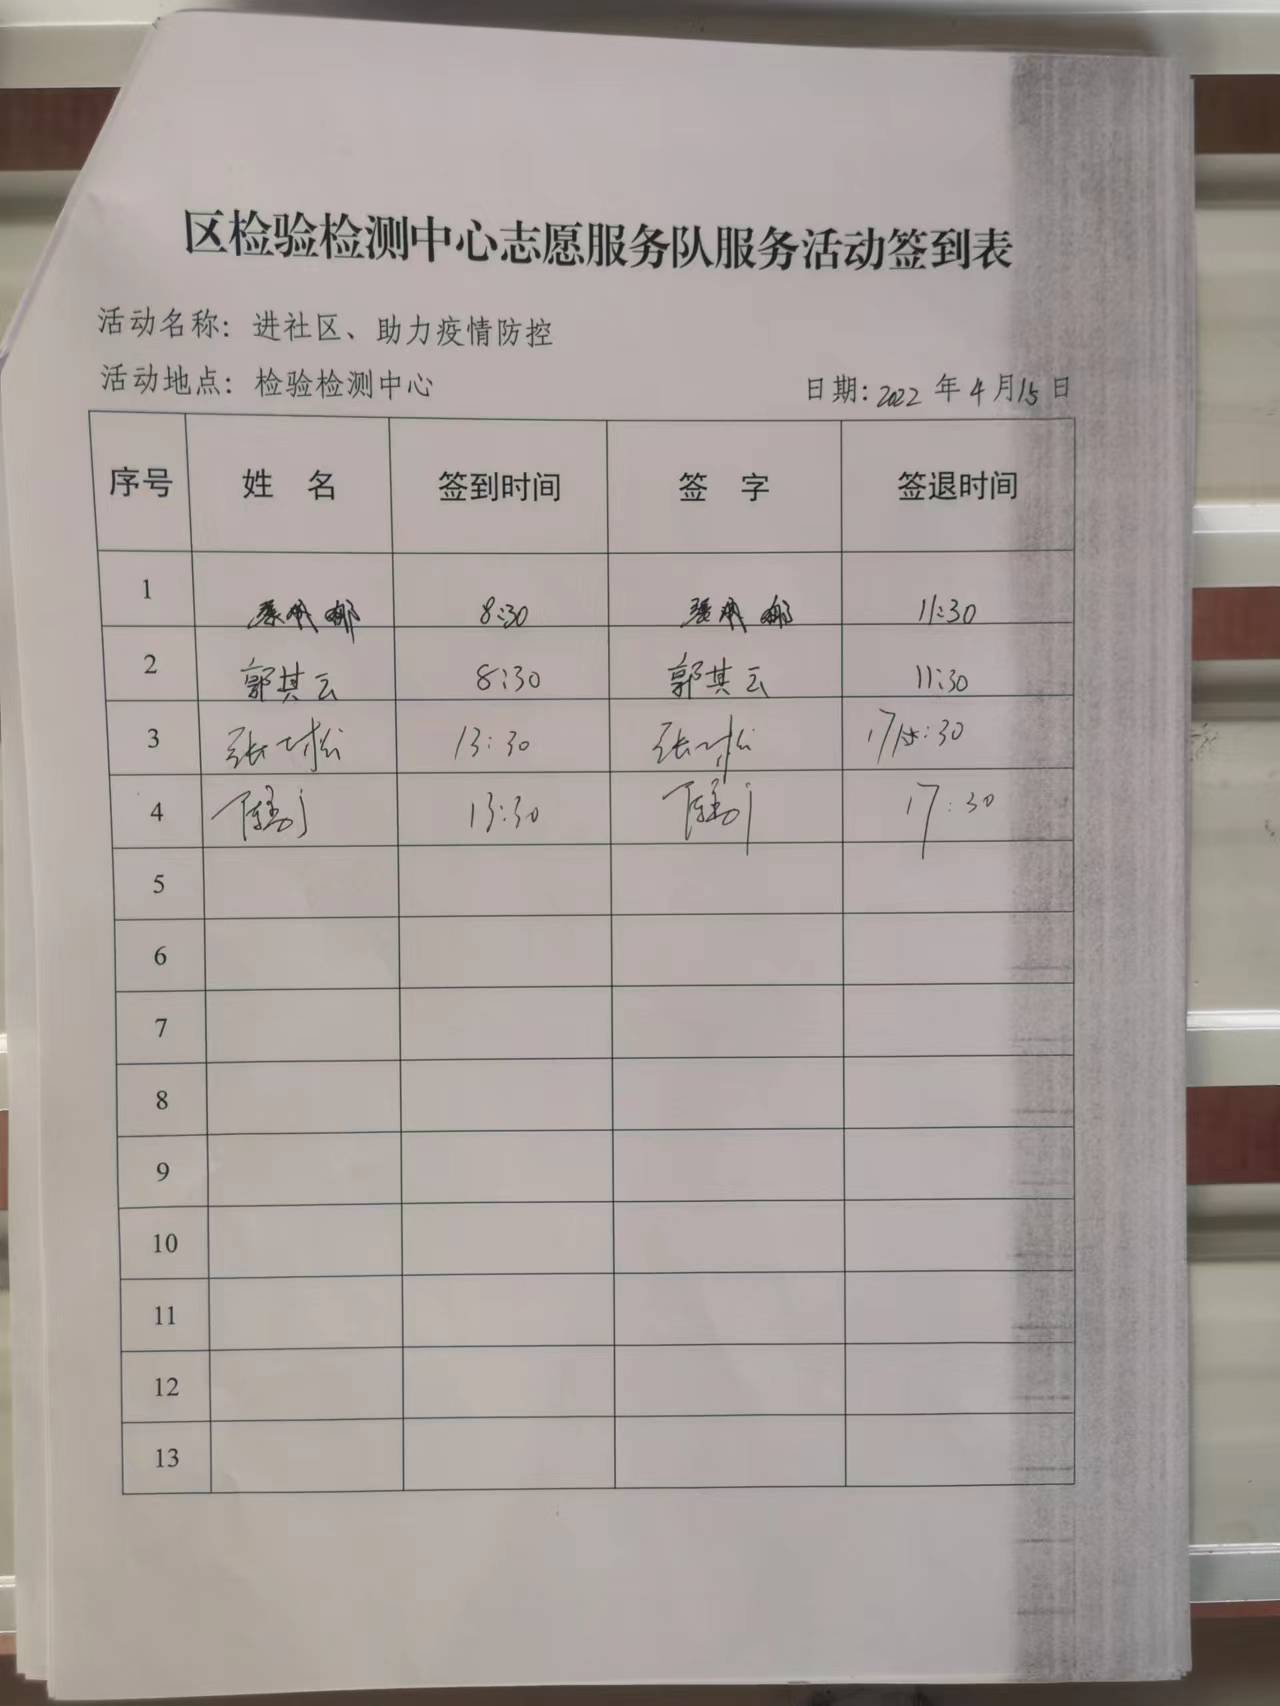 区检验检测中心志愿服务队服务活动签到表
活动名称：进社区、助力疫情防控
活动地点：检验检测中心 日期：2022年4月15日
序号 姓名 签到时间 签字 签退时间
1 8:30 11:30
2 郭其云 8:30 郭其云 11:30
3 张 松 13:30 张 松 17:30
4 陈 13:30 陈 17:30
5
6
7
8
9
10
11
12
13